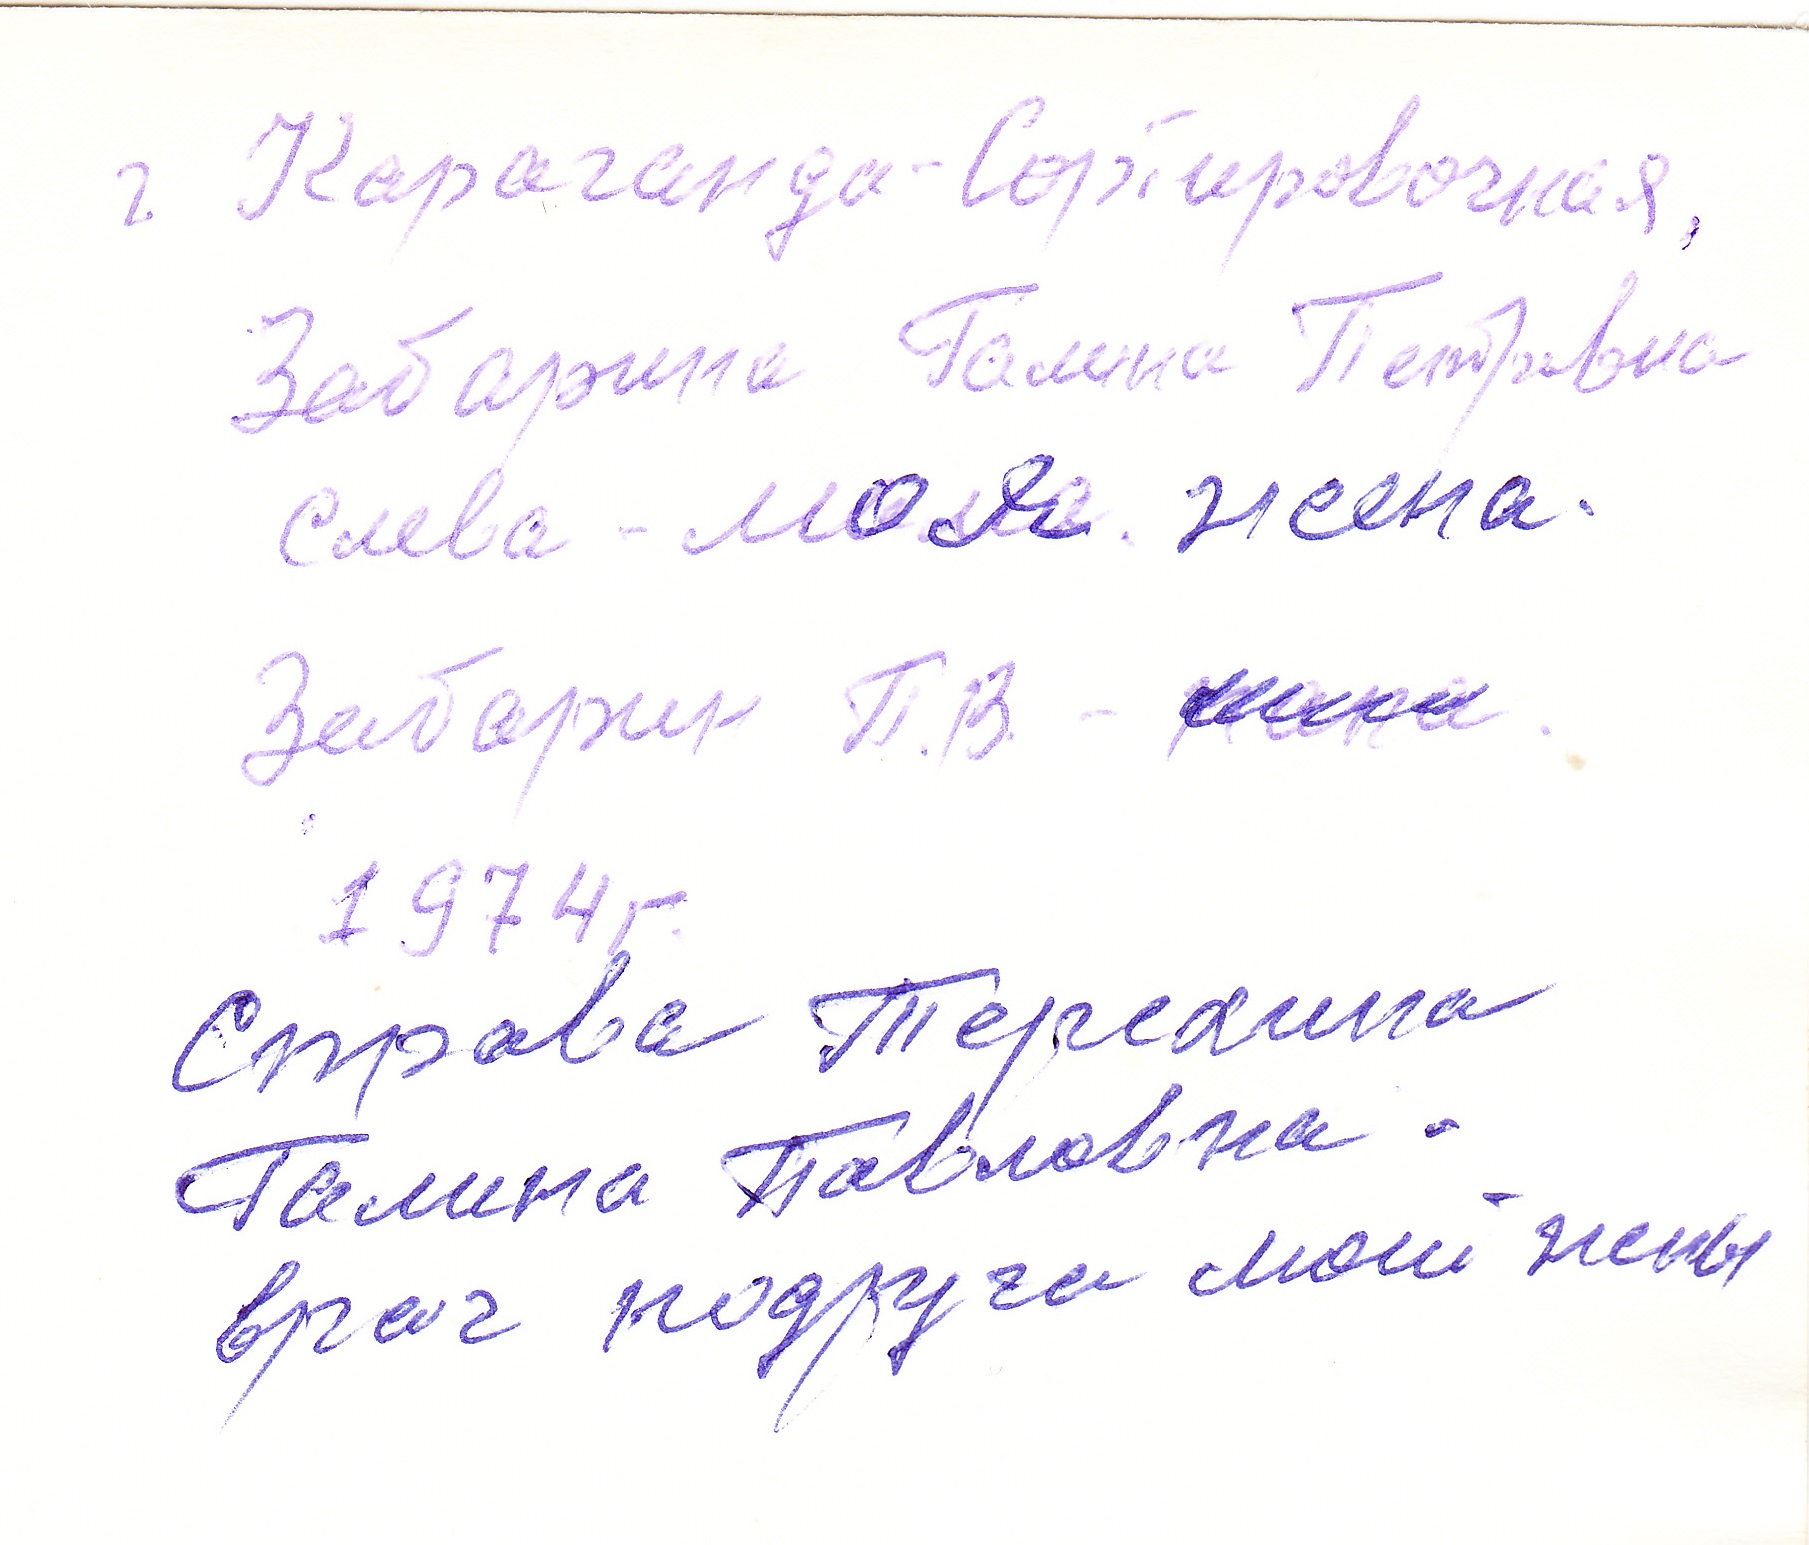 г Караганда-Сортировочная,
Забарина Галина Петровна
слева - моя жена.
Забарин П.В. -
1974г.
Справа Терехина
Галина Павловна -
врач подруга моей жены